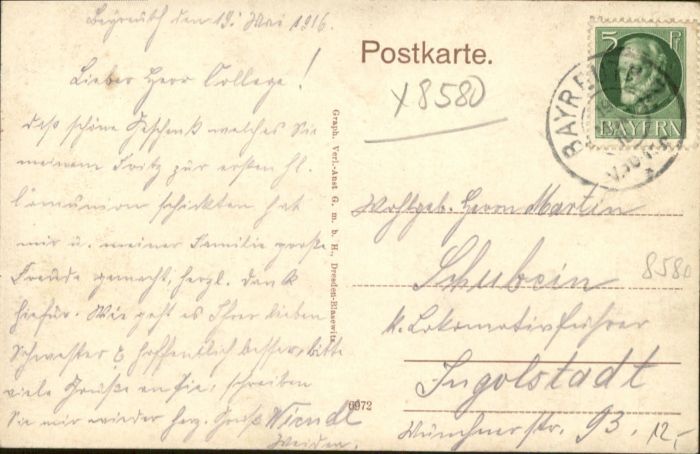 Bayreuth den 19. Mai 1916.
Lieber Herr College!
Daß schöne Geschenk welches Sie
meinem Fritz zur ersten hl.
Comunion schickten hat
mir u. meiner Familie große
Freude gemacht, herzl. Dank
hiefür. Wie geht es Ihrer lieben
Schwester hoffentlich besser, bitte
viele Grüße an Sie, schreiben
Sie mir wieder herz. Gruß Wiendl
Weiden.
Graph. Verl.-Anst G. m. b. H., Dresden-Blasewitz
6972
Postkarte.
X8580
5 Pf
BAYERN
BAYREUTH
Wohlgeb. Herrn Martin
Schubein
8580
k. Lokomotivführer
Ingolstadt
Münchnerstr. 93.
12,-